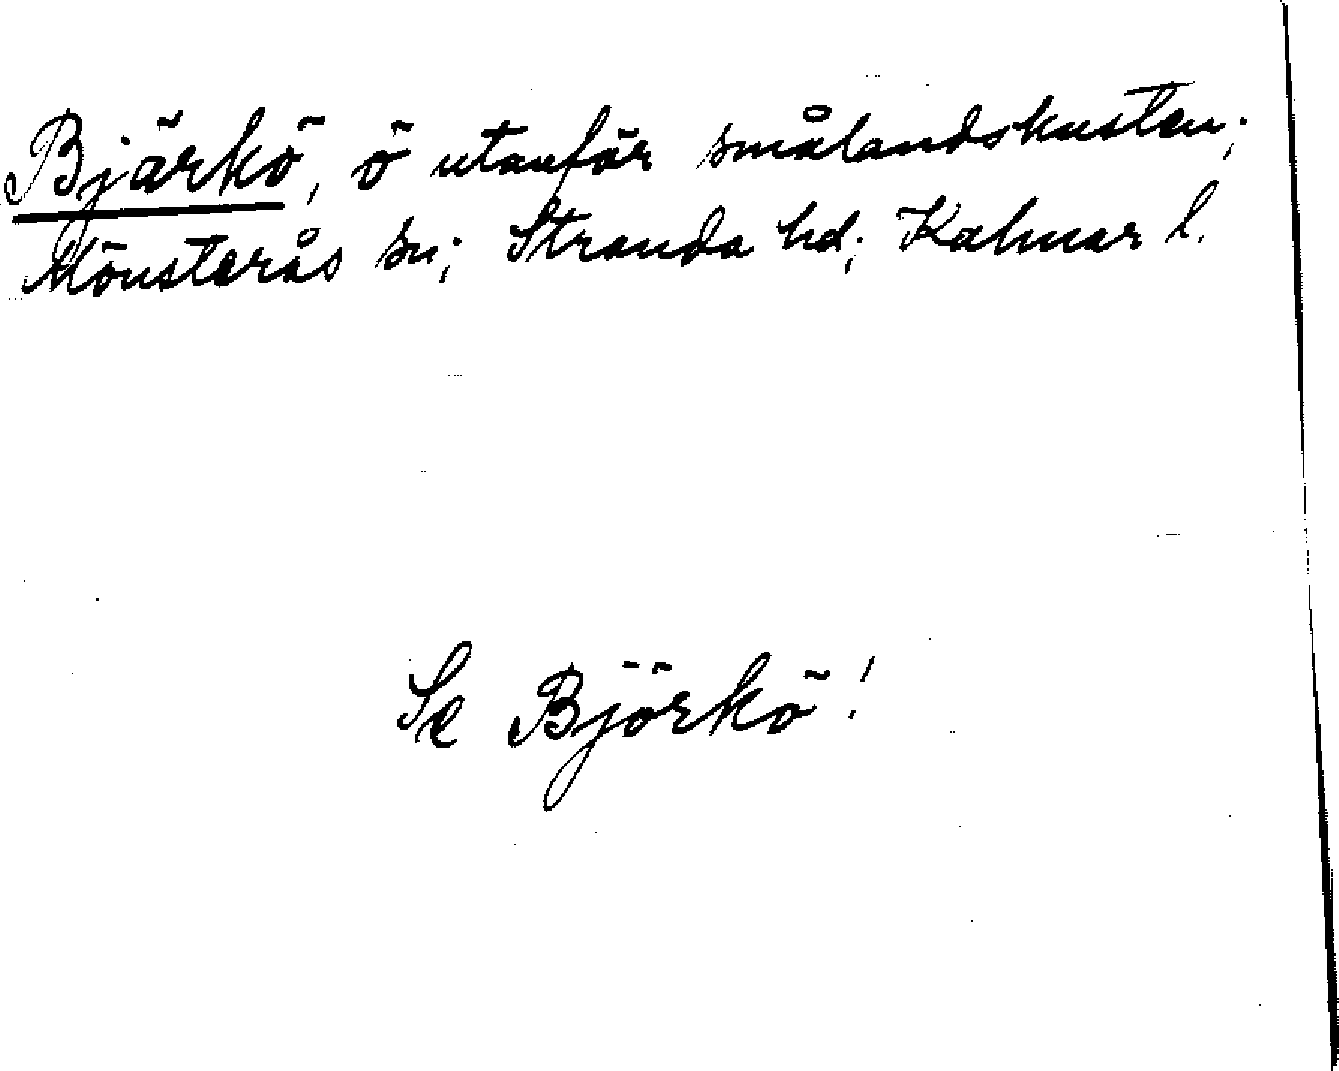 Bjärkö, ö utanför smålandskusten;
Mönsterås sn; Stranda hd; Kalmar l.
Se Björkö!